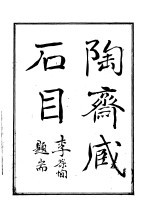 陶齋臧
石目
李葆恂
題耑